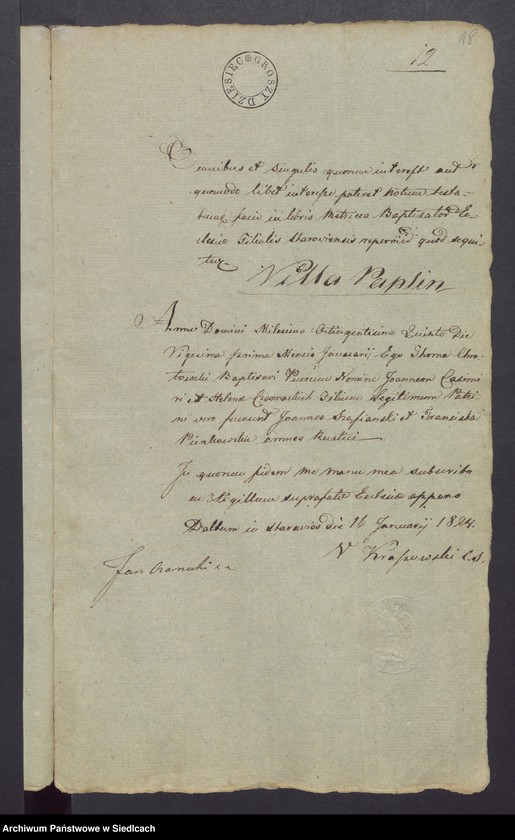 18
12
DZIESIEC GROSZY
Omnibus et Singulis quorum interest aut
quomodo libet interesse poterit Notum testa-
tumq facio in libris Metrices Baptisator Ec-
clesiæ Filialis Staroviensis reperiri quod sequi-
tur
Villa Paplin
Anno Domini Milesimo Octingentesimo Quinto Die
Vigesima prima Mensis Januarij Ego Thoma
Baptisavi Puerum Nomine Joannem Casimi
ri et Helenæ Czarnackich Filium Legitimum Patri
ni vero fuerunt Joannes et Franciska
Pienkowska omnes Rustici
In quorum fidem me manu mea subscribo
ac Sigillum suprafatæ Ecclesiæ appono
Dattum in Starawies die 16 Januarij 1824.
V Krajowski
Jan Czarnecki
Archiwum Państwowe w Siedlcach